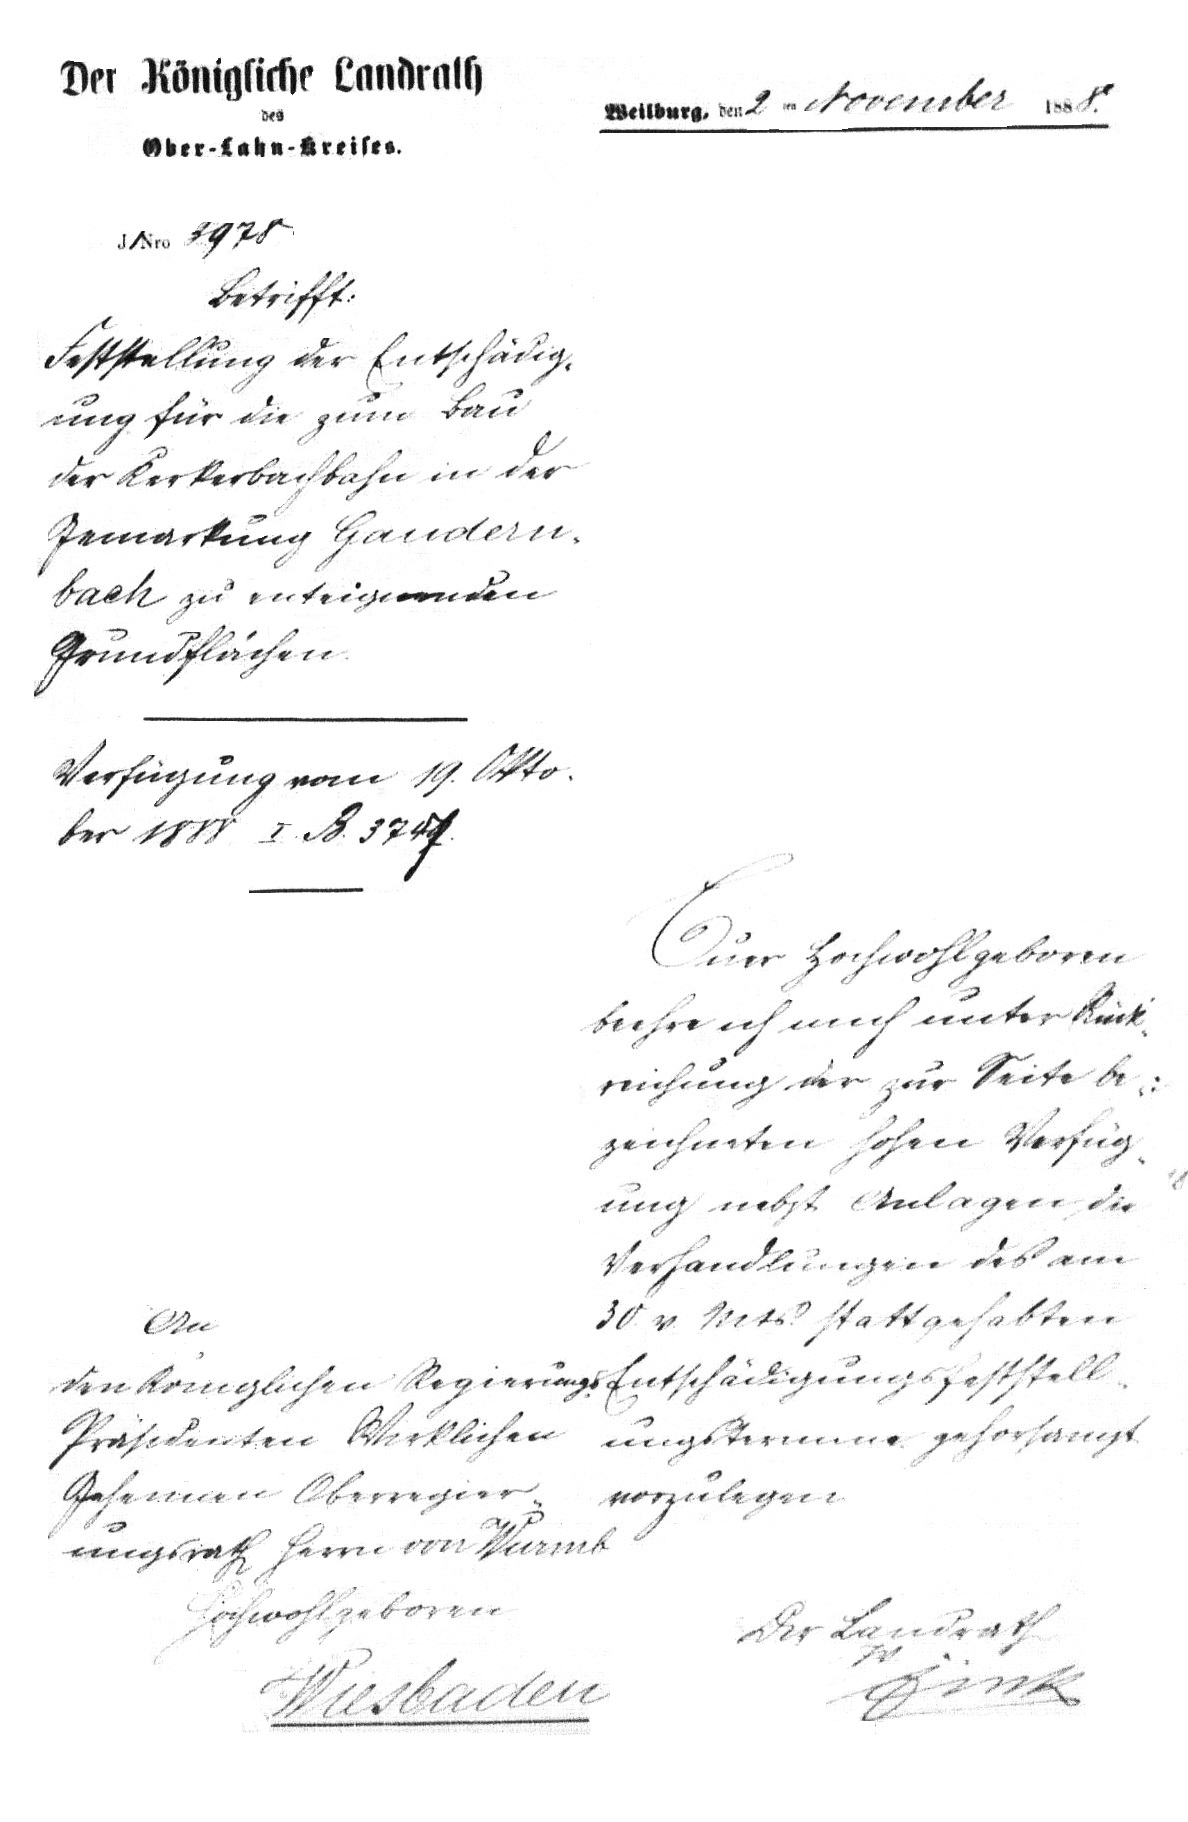 Der Königliche Landrath
des
Ober-Lahn-Kreises.
Weilburg, den 2 ten November 1888.
J/Nro 3978
Betrifft:
Feststellung der Entschädig-
ung für die zum Bau
der Kerkerbachbahn in der
Gemarkung Gaudern-
bach zu enteignenden
Grundflächen.
Verfügung vom 19. Okto-
ber 1888 I. B.
Euer Hochwohlgeboren
beehre ich mich unter Rück-
reichung der zur Seite be-
zeichneten hohen Verfüg-
ung nebst Anlagen die
Verhandlungen des am
30 v. Mts. stattgehabten
Entschädigungsfeststell-
ungstermins gehorsamst
vorzulegen
An
den Königlichen Regierungs
Präsidenten Wirklichen
Geheimen Oberregier-
ungsrath Herrn von Wurmb
Hochwohlgeboren
Wiesbaden
Der Landrath